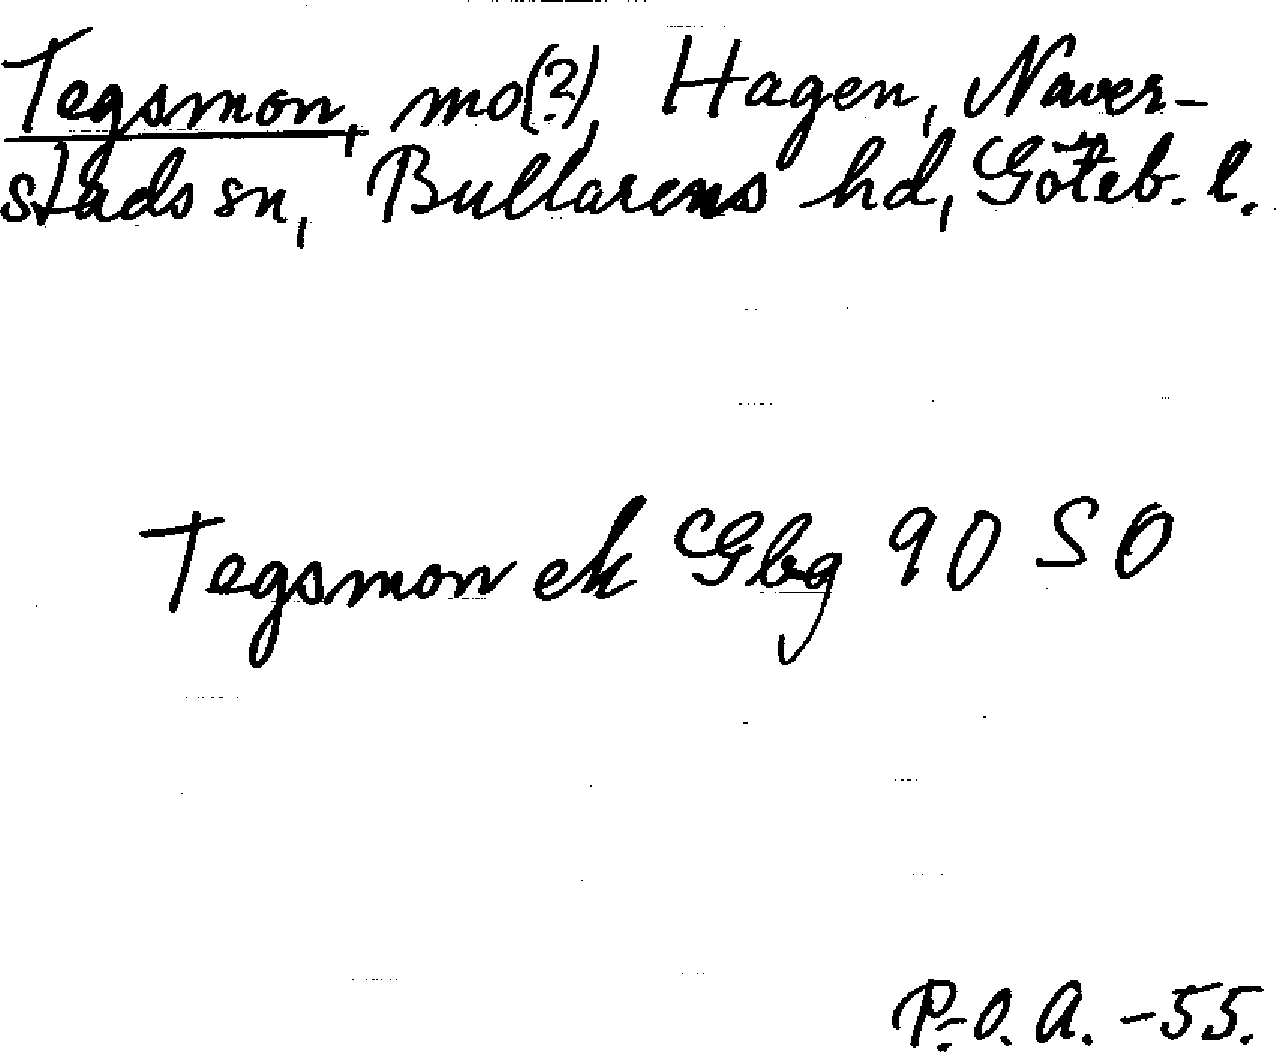 Tegsmon, mo(?), Hagen, Naver-
stads sn, Bullarens hd, Göteb. l.
Tegsmon ek Gbg 90 SO
P.-O. A. -55.